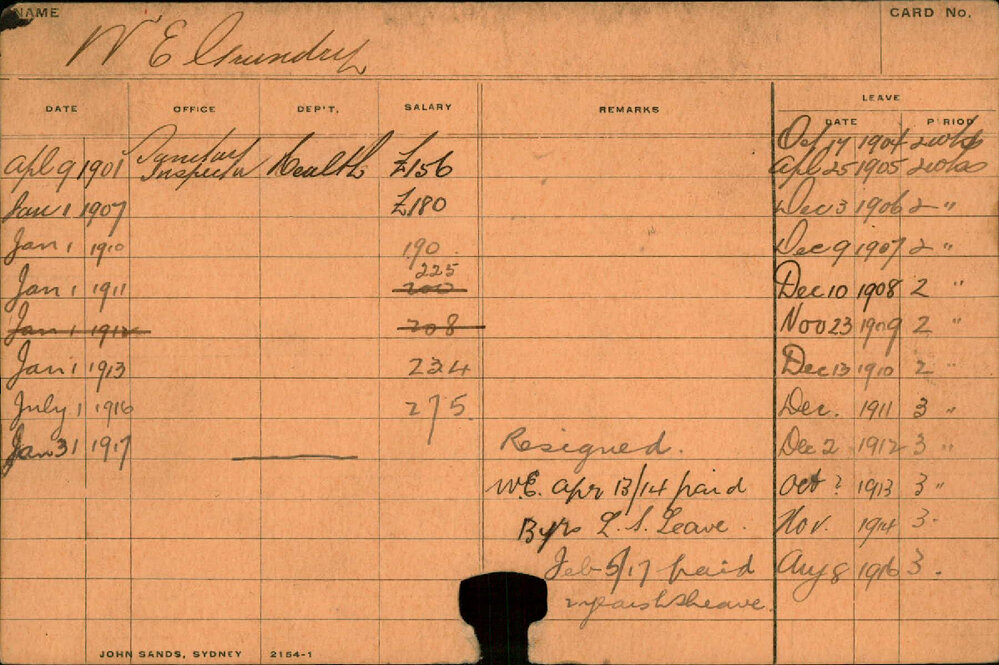 NAME
W E Grundy
CARD No.
DATE OFFICE DEP'T. SALARY REMARKS LEAVE
DATE PERIOD
Oct 17 1904 2 wks
Apl 9 1901 Sanitary Inspector Health £156 Apl 25 1905 2 wks
Jan 1 1907 £180 Dec 3 1906 2 "
Jan 1 1910 190 Dec 9 1907 2 "
225
Jan 1 1911 200 Dec 10 1908 2 "
Jan 1 1912 208 Nov 23 1909 2 "
Jan 1 1913 234 Dec 13 1910 2 "
July 1 1916 275 Dec. 1911 3 "
Jan 31 1917 Resigned. Dec 2 1912 3 "
W.E. Apr 13/14 paid Oct ? 1913 3 "
3 yrs L. S. Leave. Nov. 1914 3.
Feb 5/17 paid Aug 8 1916 3.
2 years L S Leave.
JOHN SANDS, SYDNEY 2154-1